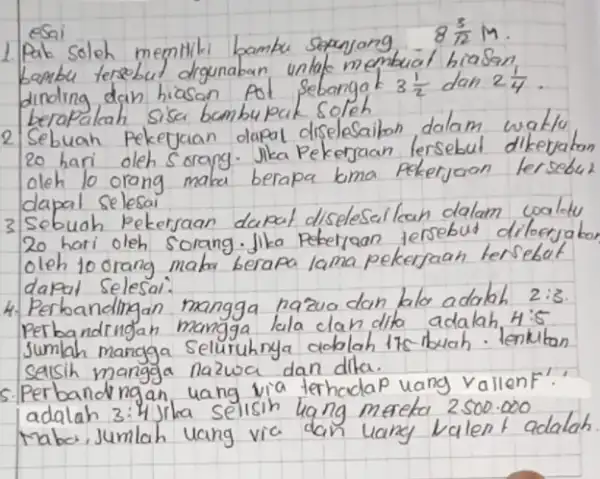 esai
1. Pak Soleh memiliki bambu sepanjang 8 3/12 M.
bambu tersebut digunakan untuk membuat hiasan
dinding dan hiasan Pot Sebangak 3 1/2 dan 2 1/4.
berapakah sisa bambu pak Soleh
2 Sebuah Pekerjaan dapat diselesaikan dalam waktu
20 hari oleh 5 orang. Jika Pekerjaan tersebut dikerjakan
oleh 10 orang maka berapa lama Pekerjaan tersebut
dapat selesai
3 Sebuah Pekerjaan dapat diselesaikan dalam waktu
20 hari oleh 5 orang. Jika Pekerjaan tersebut dikerjakan
oleh 10 orang maka berapa lama pekerjaan tersebut
dapat Selesai.
4. Perbandingan mangga nazwa dan lala adalah 2:3.
Perbandingan mangga lala dan dita adalah 4:5
Jumlah mangga Seluruhnya adalah 175 buah. tentukan
selisih mangga nazwa dan dita.
5. Perbandingan uang via terhadap uang valient
adalah 3:4 Jika selisih uang mereka 2500.000
maka, Jumlah uang via dan uang valent adalah.